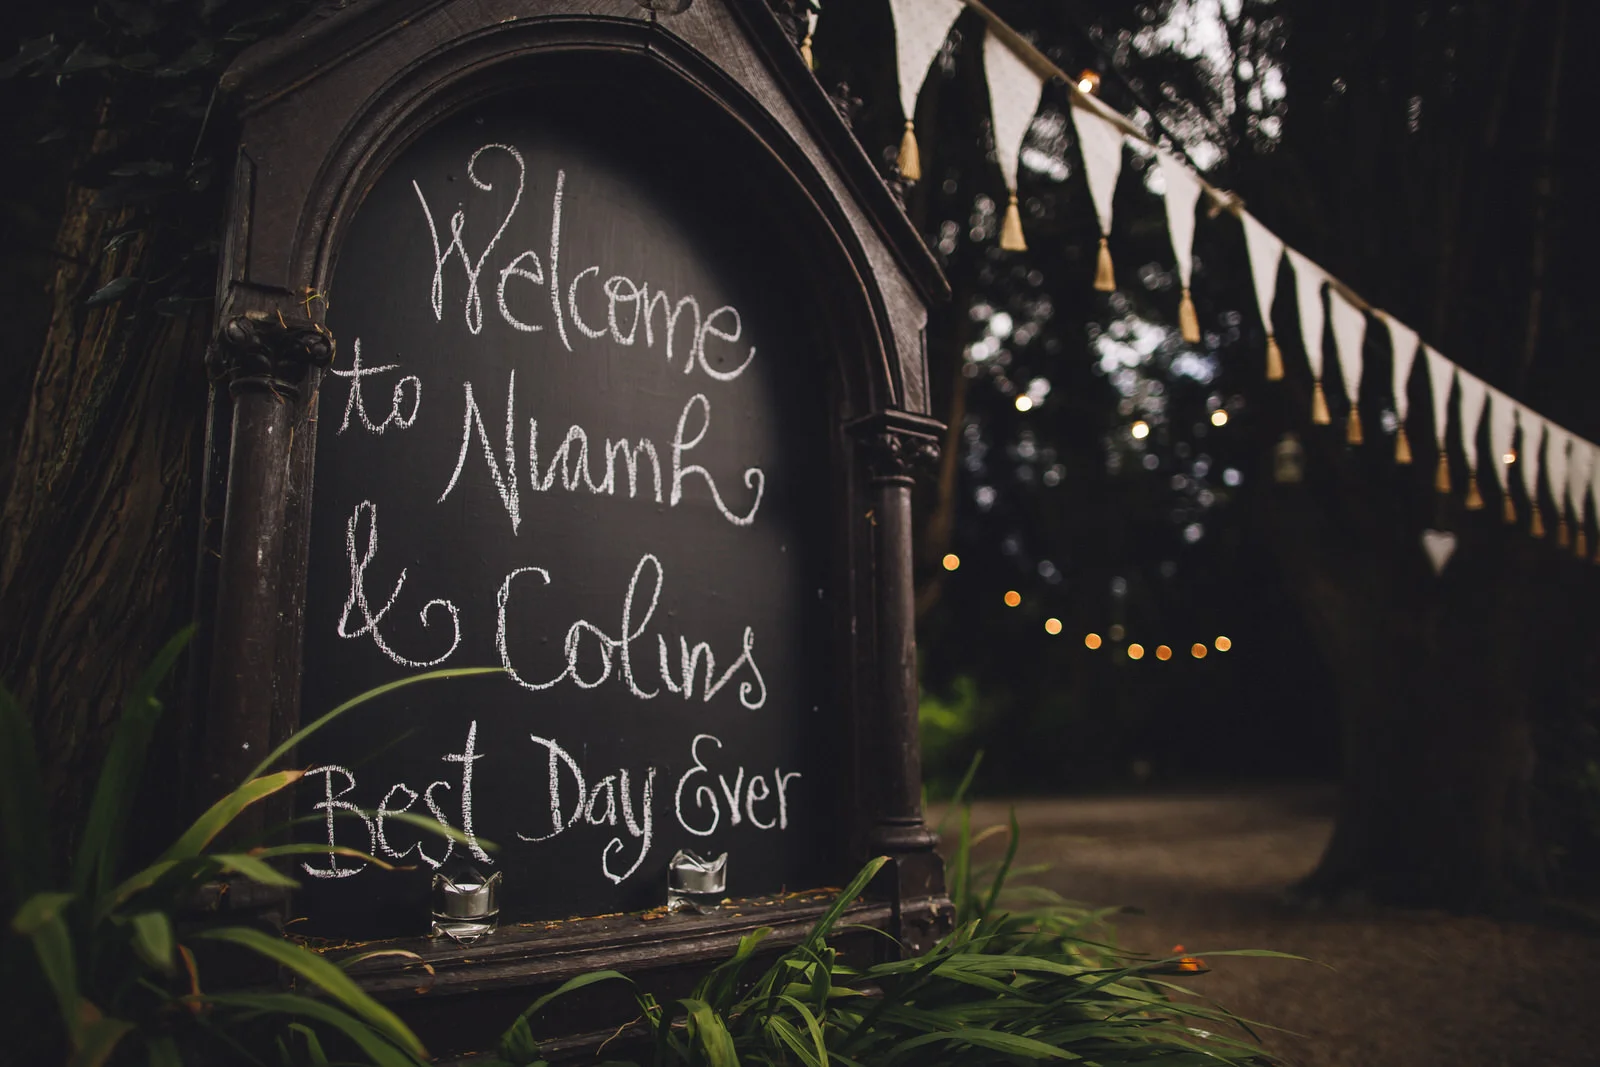 Welcome
to Niamh
& Colins
Best Day Ever